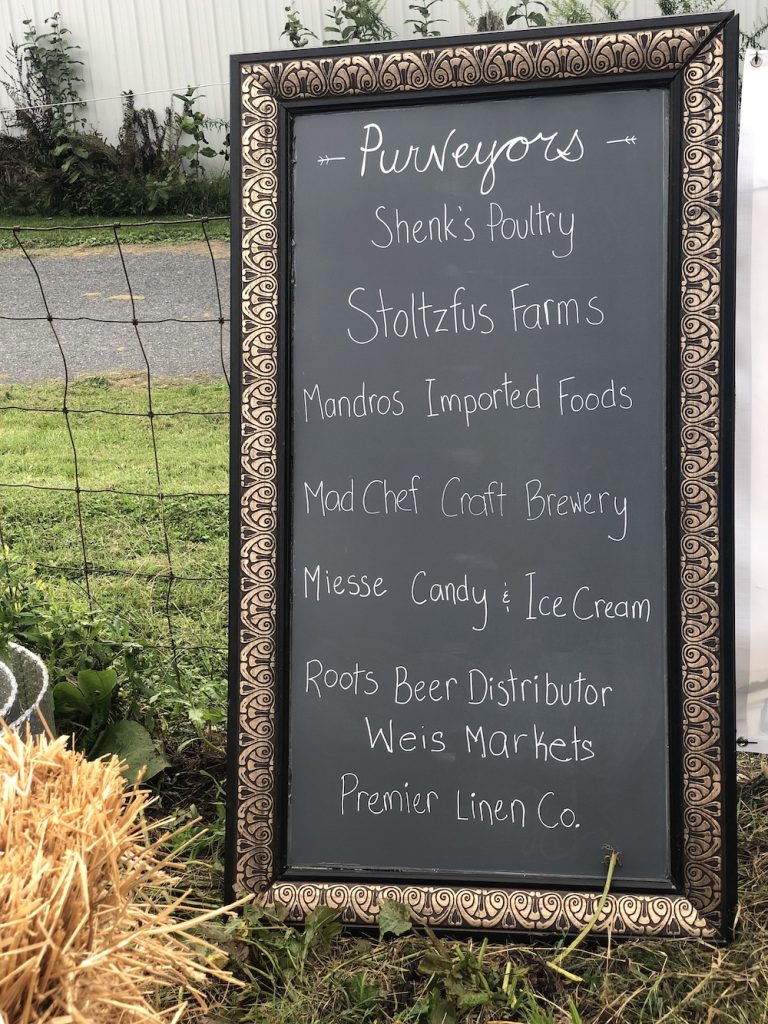 Purveyors
Shenk's Poultry
Stoltzfus Farms
Mandros Imported Foods
Mad Chef Craft Brewery
Miesse Candy & Ice Cream
Roots Beer Distributor
Weis Markets
Premier Linen Co.